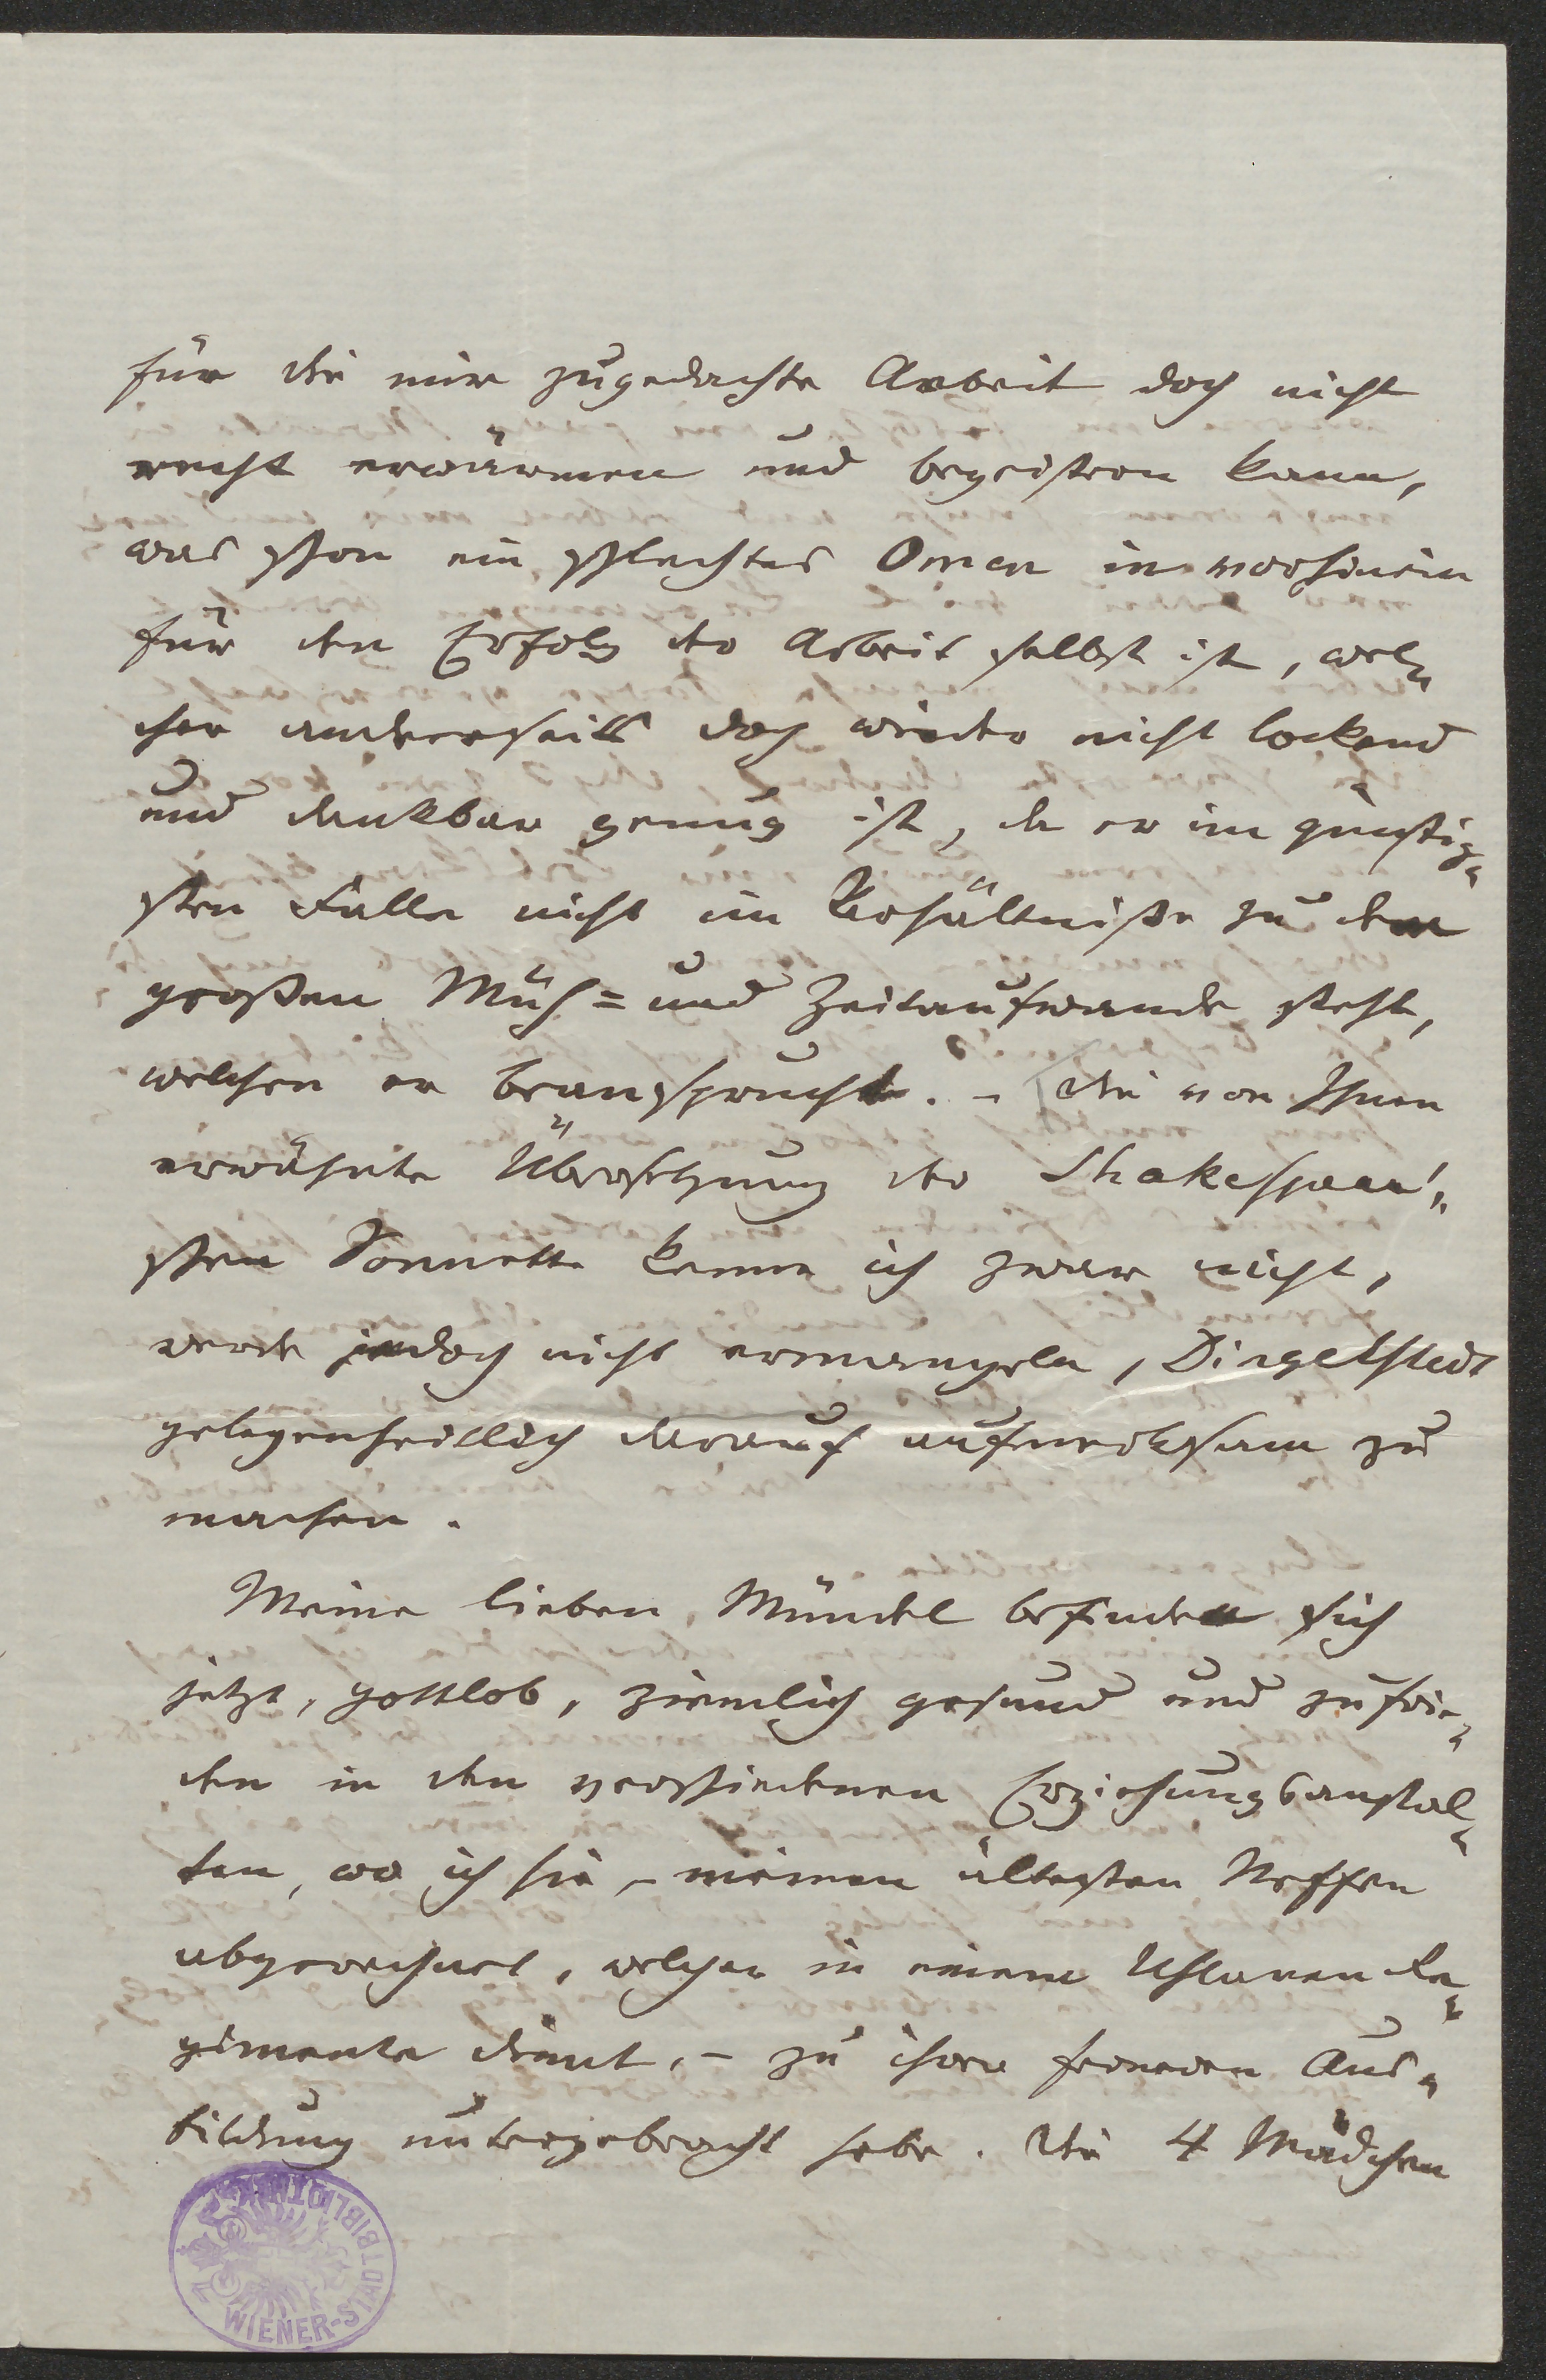 für die mir zugedachte Arbeit doch nicht
recht erwärmen und begeistern kann,
was schon ein schlechtes Omen im vorhinein
für den Erfolg der Arbeit selbst ist, wel-
cher anderseits doch wieder nicht lockend
und dankbar genug ist, da er im günstig-
sten Falle nicht im Verhältniße zu dem
großen Müh= und Zeitaufwande steht,
welchen er beansprucht. – Die von Ihnen
erwähnte Übersetzung der Shakespear'-
schen Sonnette kenne ich zwar nicht,
werde jedoch nicht ermangeln, Dingelstedt
gelegenheitlich darauf aufmerksam zu
machen.
Meine lieben Mündel befinden sich
jetzt, gottlob, ziemlich gesund und zufrie-
den in den verschiedenen Erziehungsanstal-
ten, wo ich sie, – meinen ältesten Neffen
abgerechnet, welcher in einem Uhlanen Re-
gimente dient, – zu ihrer ferneren Aus-
bildung untergebracht habe. Die 4 Mädchen
WIENER-STADTBIBLIOTHEK